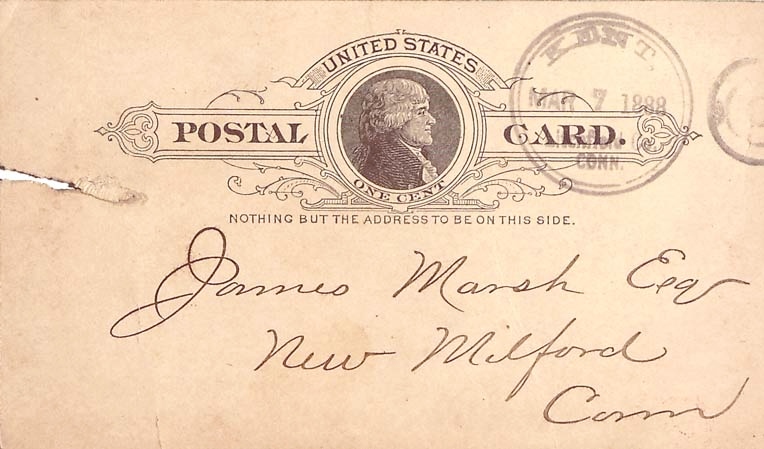 UNITED STATES
POSTAL CARD.
ONE CENT
NOTHING BUT THE ADDRESS TO BE ON THIS SIDE.
KENT,
MAR 7 1888
CONN.
James Marsh Esq
New Milford
Conn